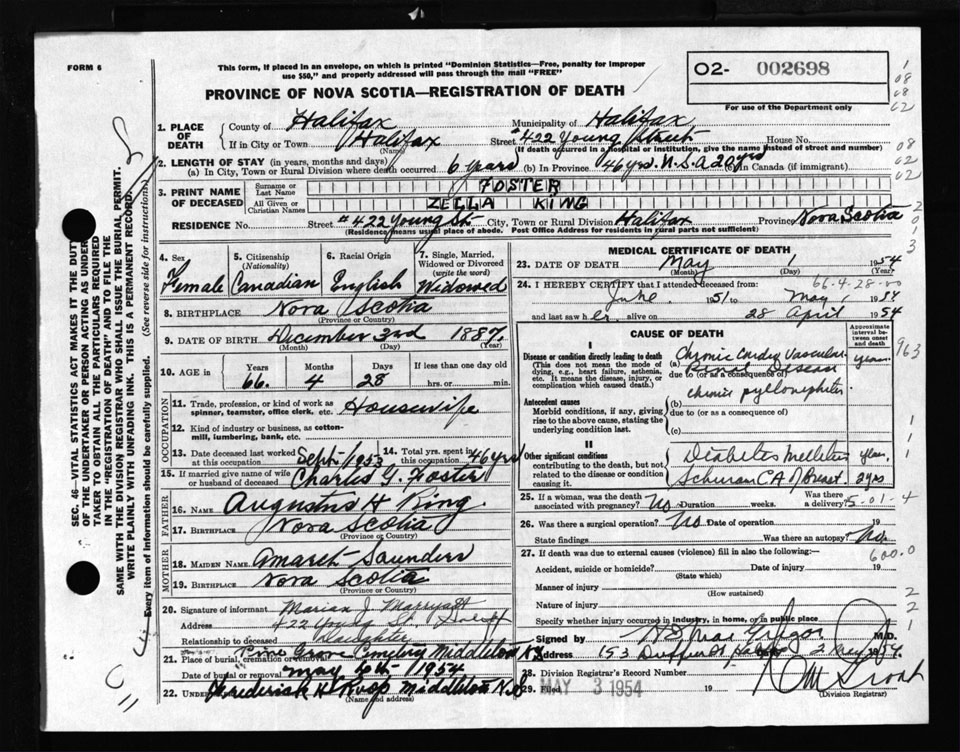 FORM 6
This form, if placed in an envelope, on which is printed "Dominion Statistics—Free, penalty for improper
use $50," and properly addressed will pass through the mail "FREE"
PROVINCE OF NOVA SCOTIA—REGISTRATION OF DEATH
O2- 002698
For use of the Department only
1. PLACE OF DEATH
County of Halifax Municipality of Halifax
If in City or Town Halifax Street #422 Young Street House No.
(Name) (If death occurred in a hospital or institution, give the name instead of street and number)
2. LENGTH OF STAY (in years, months and days)
(a) In City, Town or Rural Division where death occurred 6 years (b) In Province 46 yrs. N.S. (c) in Canada (if immigrant)
3. PRINT NAME OF DECEASED
Surname or Last Name FOSTER
All Given or Christian Names ZELLA KING
RESIDENCE No. Street #422 Young St. City, Town or Rural Division Halifax Province Nova Scotia
(Residence means usual place of abode. Post Office Address for residents in rural parts not sufficient)
4. Sex Female
5. Citizenship (Nationality) Canadian
6. Racial Origin English
7. Single, Married, Widowed or Divorced (write the word) Widowed
8. BIRTHPLACE Nova Scotia
(Province or Country)
9. DATE OF BIRTH December 3rd 1887
(Month) (Day) (Year)
10. AGE in Years 66 Months 4 Days 28 If less than one day old hrs. or min.
OCCUPATION
11. Trade, profession, or kind of work as spinner, teamster, office clerk, etc. Housewife
12. Kind of industry or business, as cotton-mill, lumbering, bank, etc.
13. Date deceased last worked at this occupation Sept. 1953
14. Total yrs. spent in this occupation 46 yrs
15. If married give name of wife or husband of deceased Charles G. Foster
FATHER
16. Name Augustus H King
17. Birthplace Nova Scotia
(Province or Country)
MOTHER
18. Maiden Name Saunders
19. Birthplace Nova Scotia
(Province or Country)
20. Signature of informant Marian J.
Address 422 Young St.
Relationship to deceased Daughter
21. Place of burial, cremation or removal Pine Grove Cemetery Middleton NS
Date of burial or removal May 4th 1954
22. Undertaker Frederick H Roop Middleton N.S.
(Name and address)
MEDICAL CERTIFICATE OF DEATH
23. DATE OF DEATH May 1 1954
(Month) (Day) (Year)
24. I HEREBY CERTIFY that I attended deceased from:
June 1951 to May 1 1954
and last saw her alive on 28 April 1954
66-4-28-00
CAUSE OF DEATH
Approximate interval between onset and death
I
Disease or condition directly leading to death
(This does not mean the mode of dying, e.g., heart failure, asthenia, etc. It means the disease, injury, or complication which caused death.)
(a) Chronic Cardio Vascular Renal Disease years
due to (or as a consequence of)
chronic pyelonephritis
Antecedent causes
Morbid conditions, if any, giving rise to the above cause, stating the underlying condition last.
(b)
due to (or as a consequence of)
(c)
II
Other significant conditions
contributing to the death, but not related to the disease or condition causing it.
Diabetes Mellitus years
CA of Breast 2 yrs
25. If a woman, was the death associated with pregnancy? No Duration weeks. Was there a delivery?
26. Was there a surgical operation? No Date of operation 19
State findings Was there an autopsy? No
27. If death was due to external causes (violence) fill in also the following:—
Accident, suicide or homicide? Date of injury 19
(State which)
Manner of injury
(How sustained)
Nature of injury
Specify whether injury occurred in industry, in home, or in public place
Signed by M.D.
Address 153 2 May 1954
28. Division Registrar's Record Number
29. Filed MAY 3 1954 19
(Division Registrar)
SEC. 46—VITAL STATISTICS ACT MAKES IT THE DUTY
OF THE UNDERTAKER OR PERSON ACTING AS UNDERTAKER TO OBTAIN ALL THE PARTICULARS REQUIRED
IN THE "REGISTRATION OF DEATH" AND TO FILE THE
SAME WITH THE DIVISION REGISTRAR WHO SHALL ISSUE THE BURIAL PERMIT.
WRITE PLAINLY WITH UNFADING INK. THIS IS A PERMANENT RECORD.
Every item of information should be carefully supplied. (See reverse side for instructions)